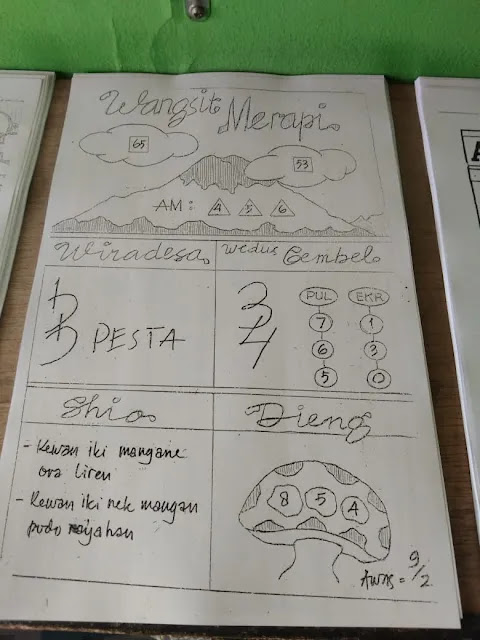 Wangsit Merapi
65
53
AM : 4 5 6
Wiradesa
PESTA
Wedus Gembel
3
4
PUL EKR
7 1
6 3
5 0
Shio
- Kewan iki mangane
ora liren
- Kewan iki nek mangan
podo rayahan
Dieng
8 5 4
AWAS = 9/2